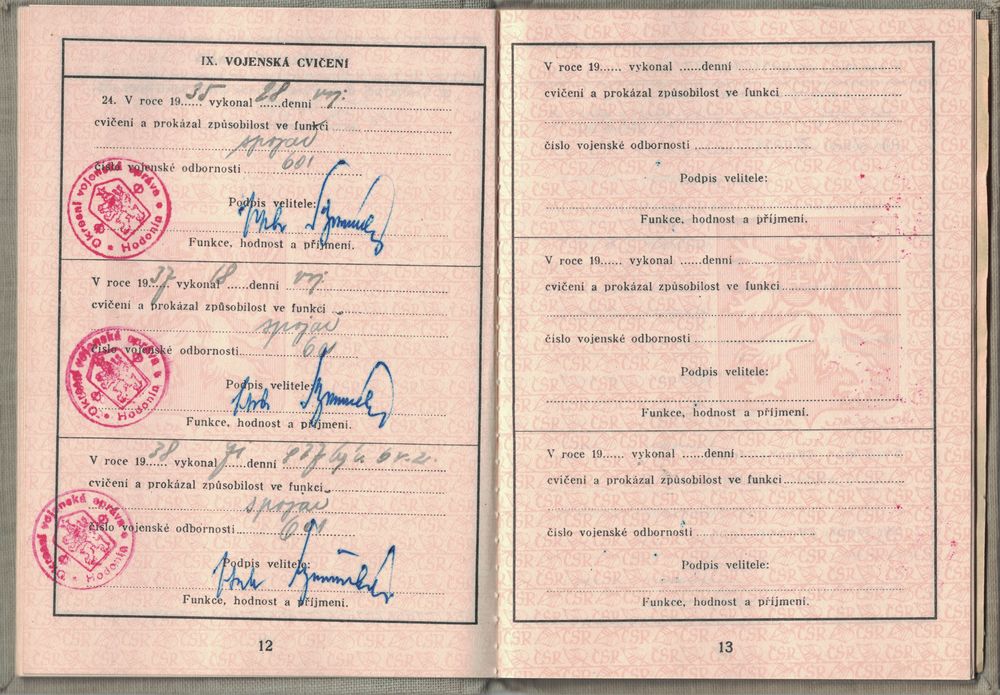 IX. VOJENSKÁ CVIČENÍ
24. V roce 1935 vykonal 28 denní voj.
cvičení a prokázal způsobilost ve funkci
spojař
číslo vojenské odbornosti 601
Podpis velitele:
Funkce, hodnost a příjmení.
Okresní vojenská správa Hodonín
V roce 1937 vykonal 18 denní voj.
cvičení a prokázal způsobilost ve funkci
spojař
číslo vojenské odbornosti 601
Podpis velitele:
Funkce, hodnost a příjmení.
Okresní vojenská správa Hodonín
V roce 1938 vykonal denní
cvičení a prokázal způsobilost ve funkci
spojař
číslo vojenské odbornosti 601
Podpis velitele:
Funkce, hodnost a příjmení.
Okresní vojenská správa Hodonín
12
V roce 19...... vykonal ......denní
cvičení a prokázal způsobilost ve funkci
číslo vojenské odbornosti
Podpis velitele:
Funkce, hodnost a příjmení.
V roce 19...... vykonal ......denní
cvičení a prokázal způsobilost ve funkci
číslo vojenské odbornosti
Podpis velitele:
Funkce, hodnost a příjmení.
V roce 19...... vykonal ......denní
cvičení a prokázal způsobilost ve funkci
číslo vojenské odbornosti
Podpis velitele:
Funkce, hodnost a příjmení.
13